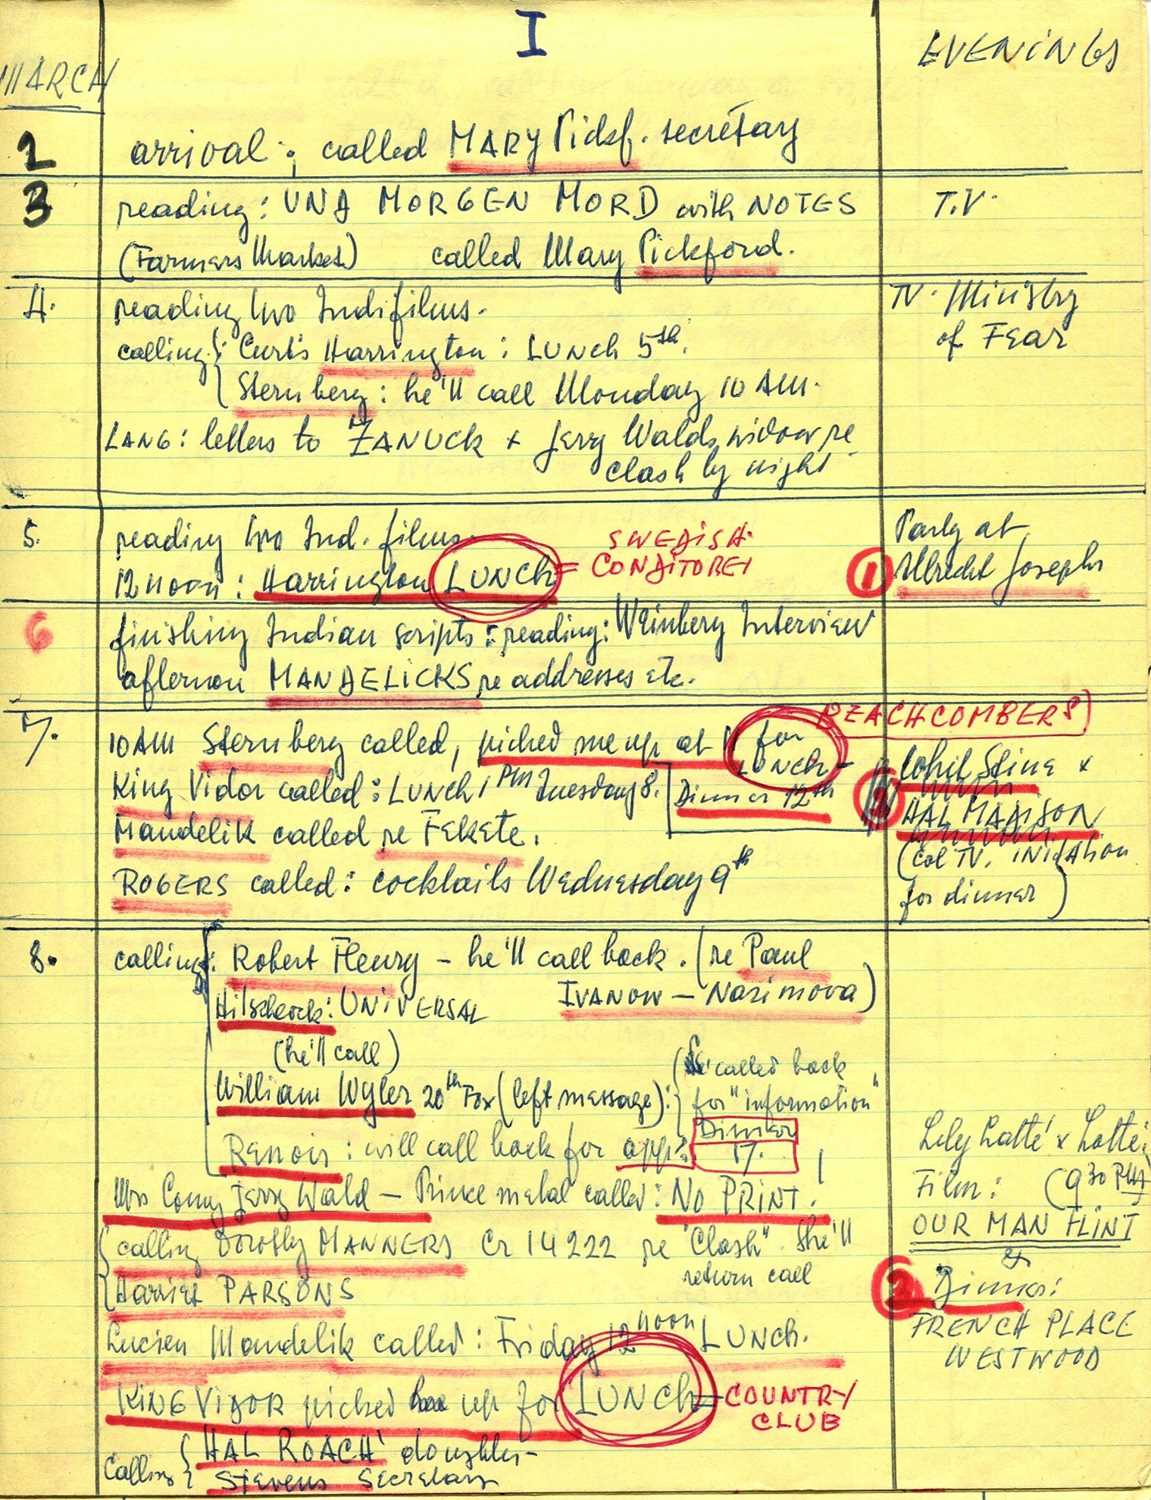 I
MARCH
EVENINGS
2 arrival; called MARY Pickf. secretary
3 reading: UNA MORGEN MORD with NOTES
T.V.
(Farmers Market) called Mary Pickford.
4. reading two Indifilms.
TV. Ministry
of Fear
calling: Curtis Harrington: LUNch 5th.
Sternberg: he'll call Monday 10 AM.
LANG: letters to ZANUCK + Jerry Walds widow re
clash by night
5. reading two Ind. films.
SWEDISH
CONDITOREI
12 noon: Harrington LUNCh =
Party at
1 Ulbrecht Josephs
6 finishing Indian scripts: reading: Weinberg Interview
afternon MANDELICKS re addresses etc.
7. 10 AM Sternberg called, picked me up at 1 for
LUNCh -
BEACHCOMBERS)
King Vidor called: LUNCh 1 PM Tuesday 8. Dinner 12th
Mandelik called re FEKETE.
ROGERS called: cocktails Wednesday 9th
Whit Stine x
HAL MADISON
(Col TV. INitAtion
for dinner)
8. calling: Robert Fleury - he'll call back. (re Paul
IVANOW - Nazimova)
Hitschcock: UNIVERSAL
(he'll call)
William Wyler 20th Fox (left message):
(he called back
for "information"
Renoir: will call back for app:
Dinner
17.
Mrs Conny Jerry Wald - Prince metal called: No PRINT.
calling Dorothy MANNERS Cr 14222 re "Clash" She'll
return call
Harriet PARSONS
Lucien Mandelik called: Friday 12 noon LUNCh.
KING VIDOR picked me up for LUNCh = COUNTRY
CLUB
Calling HAL ROACH' doughter -
Stevens Secretary
Lily Latté x Lotte:
Film: (9 30 PM)
OUR MAN FLINT
&
2 Dinner:
FRENCH PLACE
WESTWOOD